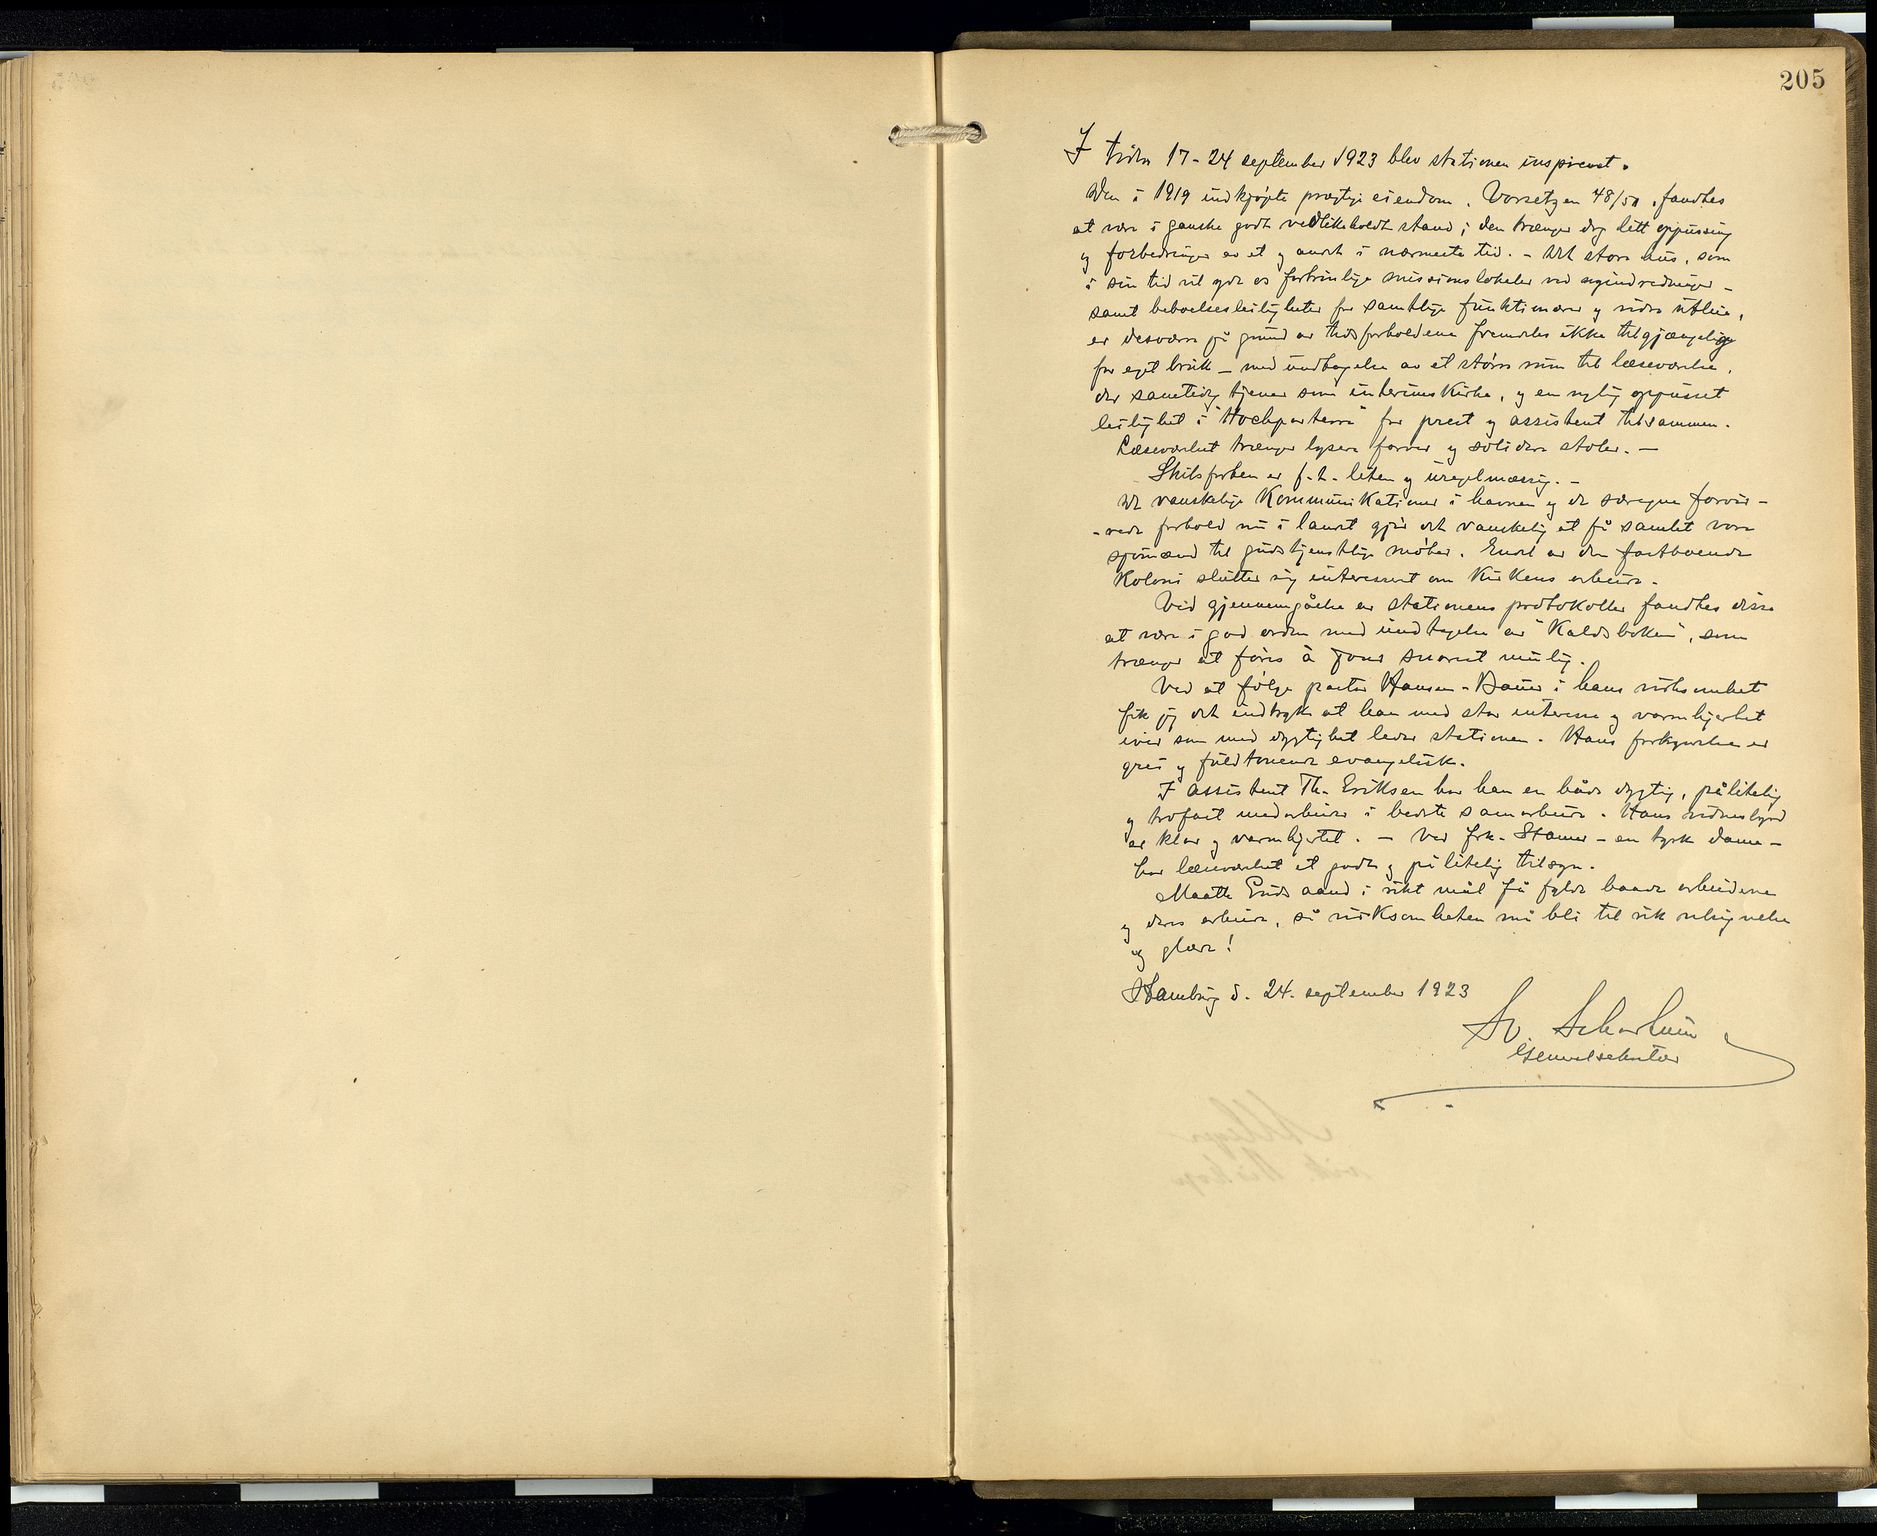 205
I tiden 17-24 september 1923 blev stationen inspicert.
Den i 1919 indkjøpte prægtige eiendom, Vorsetzen 48/50, fandtes
at være i ganske godt vedlikeholdt stand; den trænger dog litt oppussing
og forbedringer av et og andet i nærmeste tid. - Det store hus, som
i sin tid vil yde os fortrinlige missionslokaler ved nyindredninger -
samt beboelsesleiligheter for samtlige funktionærer og videre utleie,
er desværre på grund av tidsforholdene fremdeles ikke tilgjængelige
for eget bruk - med undtagelse av et større rum til læseværelse,
der samtidig tjener som interimskirke, og en nylig oppusset
leilighet i "Hochparterre" for prest og assistent tilsammen.
Læseværelset trænger lysere farver og solidere stoler. -
Skibsfarten er f. t. liten og uregelmæssig. -
De vanskelige Kommunikationer i havnen og de særegne forvir-
-rede forhold nu i landet gjør det vanskelig at få samlet vore
sjømænd til gudstjenstlige møter. Endel av den fastboende
Koloni slutter sig interessert om Kirkens arbeide.
Ved gjennemgåelse av stationens protokoller fandtes disse
at være i god orden med undtagelse av "Kaldsboken", som
trænger at føres à jour snarest mulig.
Ved at følge pastor Hansen-Bauer i hans virksomhet
fik jeg det indtryk at han med stor interesse og varmhjertet
iver som med dygtighet leder stationen. Hans forkyndelse er
grei og fuldtonende evangelisk.
I assistent Th. Eriksen har han en både dygtig, pålitelig
og trofast medarbeider i bedste samarbeide. Hans vidnesbyrd
er klar og varmhjertet. - Ved frk. Stamer - en tysk dame -
har læseværelset et godt og pålitelig tilsyn.
Maatte Guds aand i rikt mål få fylde baade arbeiderne
og deres arbeide, så virksomheten må bli til rik velsignelse
og glæde!
Hamburg d. 24. september 1923
Generalsekretær